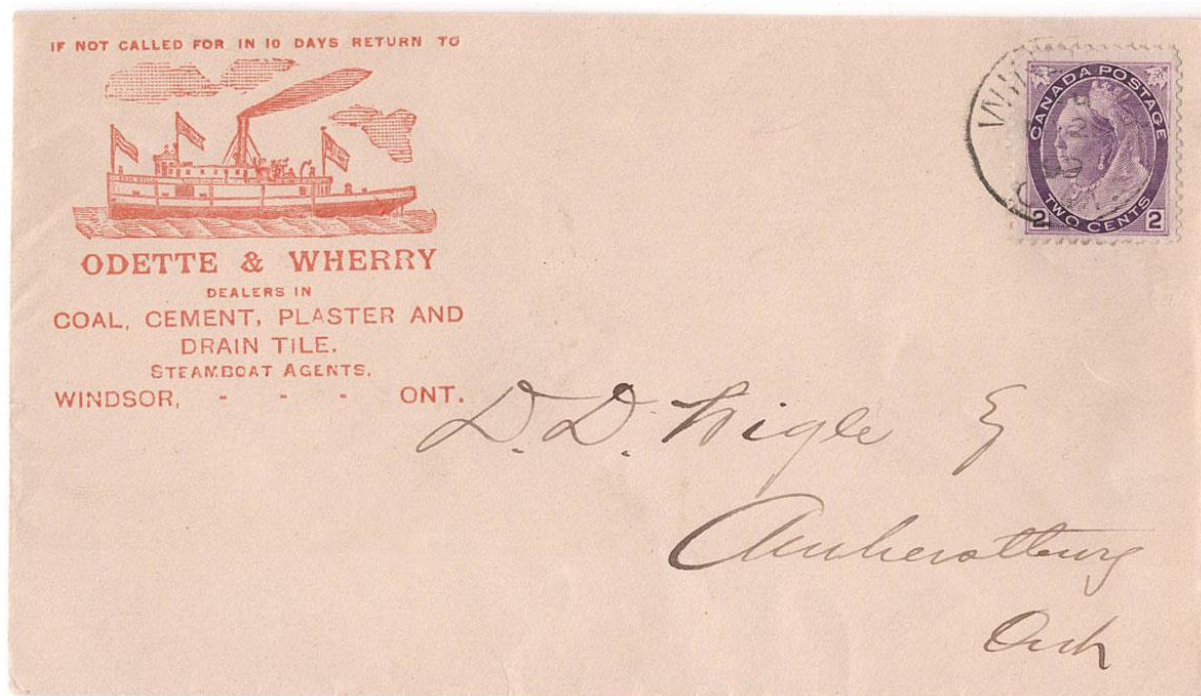 IF NOT CALLED FOR IN 10 DAYS RETURN TO
ODETTE & WHERRY
DEALERS IN
COAL, CEMENT, PLASTER AND
DRAIN TILE.
STEAMBOAT AGENTS.
WINDSOR, - - - ONT.
CANADA POSTAGE
2 TWO CENTS 2
D. D. Wigle
Amherstburg
Ont